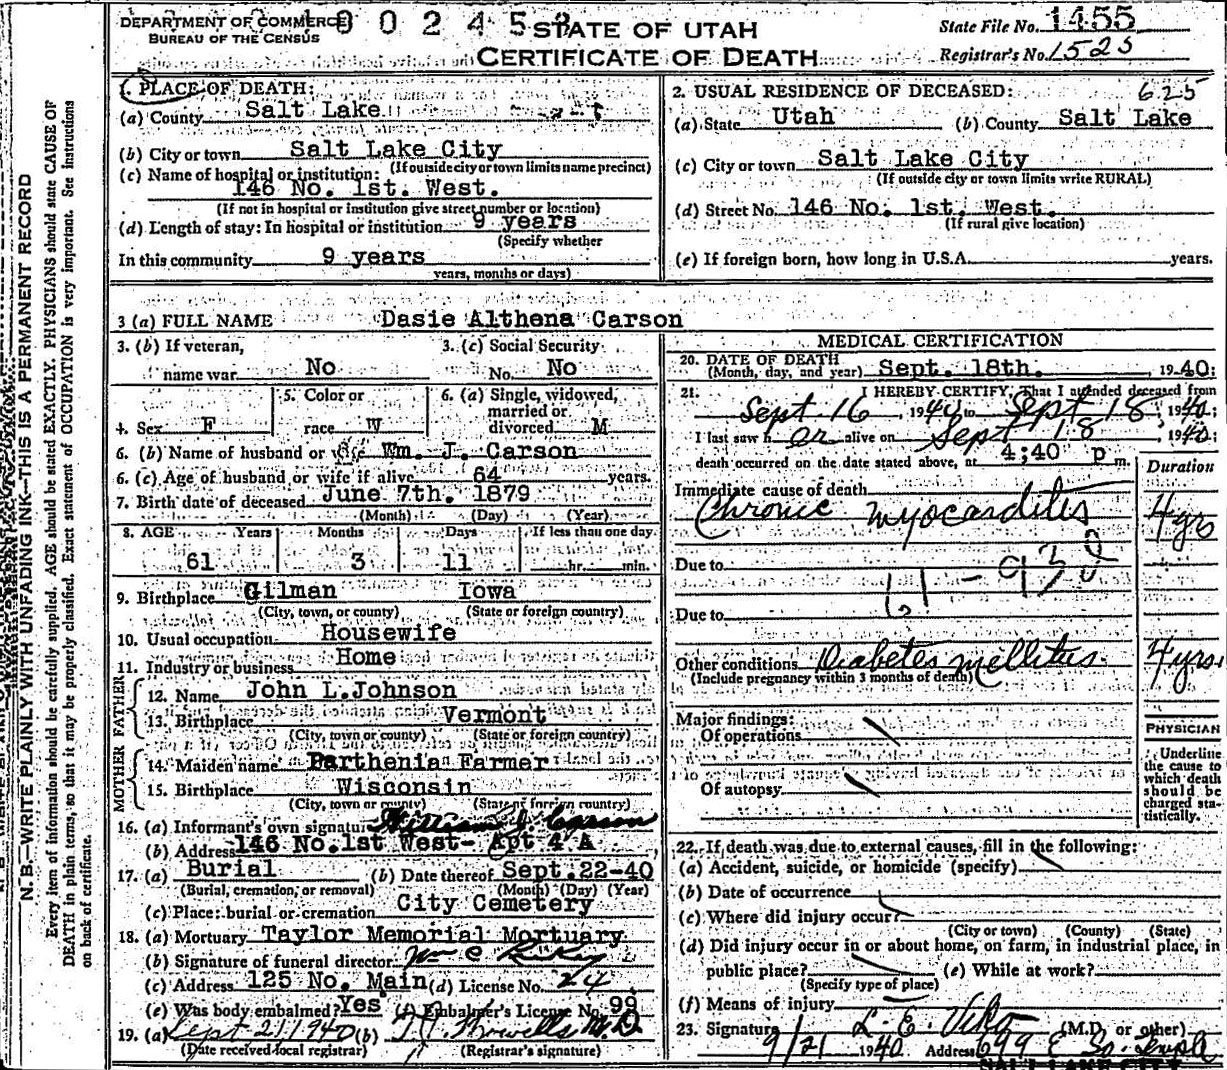 DEPARTMENT OF COMMERCE
BUREAU OF THE CENSUS
0 0 2 4 5
STATE OF UTAH
CERTIFICATE OF DEATH
State File No. 1455
Registrar's No. 1525
1. PLACE OF DEATH:
(a) County Salt Lake
(b) City or town Salt Lake City
(If outside city or town limits name precinct)
(c) Name of hospital or institution:
146 No. 1st. West.
(If not in hospital or institution give street number or location)
(d) Length of stay: In hospital or institution 9 years
(Specify whether
In this community 9 years
years, months or days)
2. USUAL RESIDENCE OF DECEASED: 625
(a) State Utah (b) County Salt Lake
(c) City or town Salt Lake City
(If outside city or town limits write RURAL)
(d) Street No. 146 No. 1st. West.
(If rural give location)
(e) If foreign born, how long in U.S.A. years.
3 (a) FULL NAME Dasie Althena Carson
3. (b) If veteran,
name war No
3. (c) Social Security
No. No
4. Sex F
5. Color or
race W
6. (a) Single, widowed,
married or
divorced M
6. (b) Name of husband or wife Wm. J. Carson
6. (c) Age of husband or wife if alive 64 years.
7. Birth date of deceased June 7th. 1879
(Month) (Day) (Year)
8. AGE Years Months Days If less than one day
61 3 11 hr. min.
9. Birthplace Gilman Iowa
(City, town, or county) (State or foreign country)
10. Usual occupation Housewife
11. Industry or business Home
FATHER
12. Name John L. Johnson
13. Birthplace Vermont
(City, town, or county) (State or foreign country)
MOTHER
14. Maiden name Parthenia Farmer
15. Birthplace Wisconsin
(City, town or county) (State or foreign country)
16. (a) Informant's own signature William J. Carson
(b) Address 146 No. 1st West- Apt 4 A
17. (a) Burial (b) Date thereof Sept. 22-40
(Burial, cremation, or removal) (Month) (Day) (Year)
(c) Place: burial or cremation City Cemetery
18. (a) Mortuary Taylor Memorial Mortuary
(b) Signature of funeral director Wm C
(c) Address 125 No. Main (d) License No. 24
(e) Was body embalmed? Yes (f) Embalmer's License No. 99
19. (a) Sept 21 1940 (b) M.D.
(Date received local registrar) (Registrar's signature)
MEDICAL CERTIFICATION
20. DATE OF DEATH
(Month, day, and year) Sept. 18th. 1940:
21. I HEREBY CERTIFY, That I attended deceased from
Sept 16, 1940 to Sept 18, 1940;
I last saw her alive on Sept 18, 1940;
death occurred on the date stated above, at 4;40 p m.
Duration
Immediate cause of death
Chronic myocarditis 4 yrs
Due to
61 - 930
Due to
Other conditions Diabetes mellitus 4 yrs.
(Include pregnancy within 3 months of death)
Major findings:
Of operations
Of autopsy
PHYSICIAN
Underline
the cause to
which death
should be
charged sta-
tistically.
22. If death was due to external causes, fill in the following:
(a) Accident, suicide, or homicide (specify)
(b) Date of occurrence
(c) Where did injury occur?
(City or town) (County) (State)
(d) Did injury occur in or about home, on farm, in industrial place, in
public place? (e) While at work?
(Specify type of place)
(f) Means of injury
23. Signature L. E. Viko (M.D. or other)
9/21 1940 Address 699 E So. Temple
SALT LAKE CITY
N. B.—WRITE PLAINLY WITH UNFADING INK—THIS IS A PERMANENT RECORD
Every item of information should be carefully supplied. AGE should be stated EXACTLY. PHYSICIANS should state CAUSE OF
DEATH in plain terms, so that it may be properly classified. Exact statement of OCCUPATION is very important. See instructions
on back of certificate.